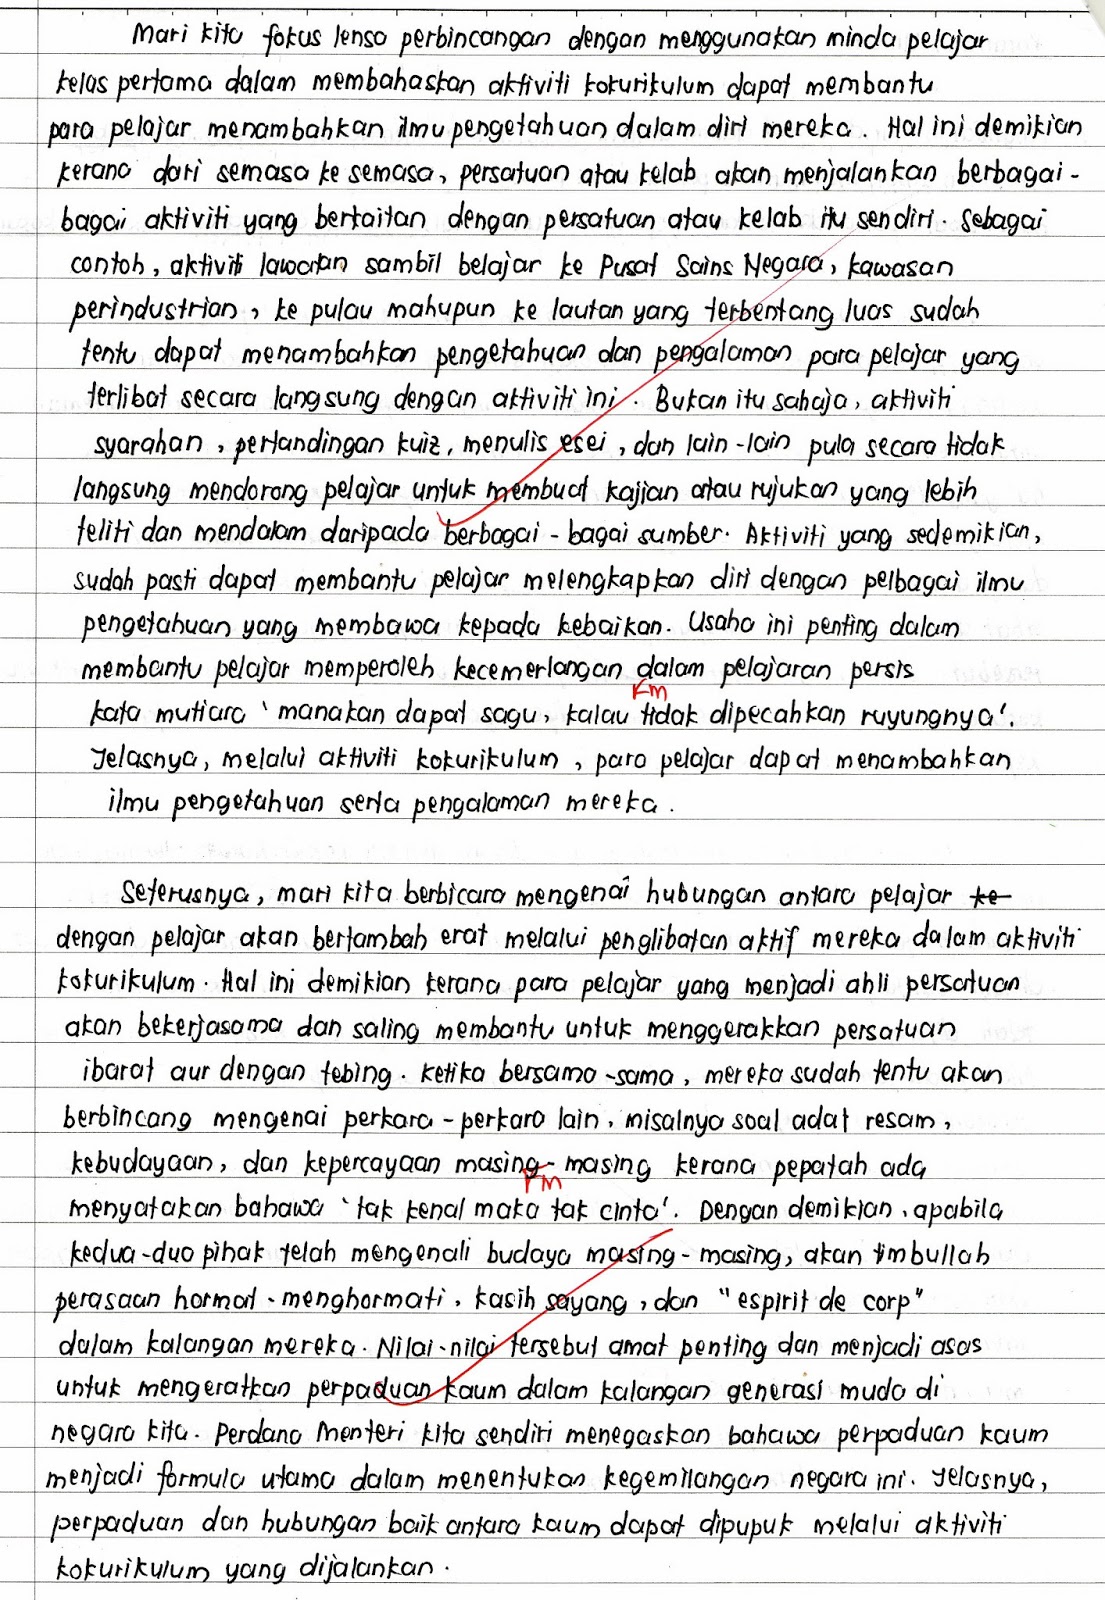 Mari kita fokus lensa perbincangan dengan menggunakan minda pelajar
kelas pertama dalam membahaskan aktiviti kokurikulum dapat membantu
para pelajar menambahkan ilmu pengetahuan dalam diri mereka. Hal ini demikian
kerana dari semasa ke semasa, persatuan atau kelab akan menjalankan berbagai-
bagai aktiviti yang berkaitan dengan persatuan atau kelab itu sendiri. Sebagai
contoh, aktiviti lawatan sambil belajar ke Pusat Sains Negara, kawasan
perindustrian, ke pulau mahupun ke lautan yang terbentang luas sudah
tentu dapat menambahkan pengetahuan dan pengalaman para pelajar yang
terlibat secara langsung dengan aktiviti ini. Bukan itu sahaja, aktiviti
syarahan, pertandingan kuiz, menulis esei, dan lain-lain pula secara tidak
langsung mendorong pelajar untuk membuat kajian atau rujukan yang lebih
teliti dan mendalam daripada berbagai-bagai sumber. Aktiviti yang sedemikian,
sudah pasti dapat membantu pelajar melengkapkan diri dengan pelbagai ilmu
pengetahuan yang membawa kepada kebaikan. Usaha ini penting dalam
membantu pelajar memperoleh kecemerlangan dalam pelajaran persis
KM
kata mutiara 'manakan dapat sagu, kalau tidak dipecahkan ruyungnya'.
Jelasnya, melalui aktiviti kokurikulum, para pelajar dapat menambahkan
ilmu pengetahuan serta pengalaman mereka.
Seterusnya, mari kita berbicara mengenai hubungan antara pelajar ke
dengan pelajar akan bertambah erat melalui penglibatan aktif mereka dalam aktiviti
kokurikulum. Hal ini demikian kerana para pelajar yang menjadi ahli persatuan
akan bekerjasama dan saling membantu untuk menggerakkan persatuan
ibarat aur dengan tebing. Ketika bersama-sama, mereka sudah tentu akan
berbincang mengenai perkara-perkara lain, misalnya soal adat resam,
kebudayaan, dan kepercayaan masing-masing kerana pepatah ada
PM
menyatakan bahawa 'tak kenal maka tak cinta'. Dengan demikian, apabila
kedua-dua pihak telah mengenali budaya masing-masing, akan timbullah
perasaan hormat-menghormati, kasih sayang, dan "espirit de corp"
dalam kalangan mereka. Nilai-nilai tersebut amat penting dan menjadi asas
untuk mengeratkan perpaduan kaum dalam kalangan generasi muda di
negara kita. Perdana Menteri kita sendiri menegaskan bahawa perpaduan kaum
menjadi formula utama dalam menentukan kegemilangan negara ini. Jelasnya,
perpaduan dan hubungan baik antara kaum dapat dipupuk melalui aktiviti
kokurikulum yang dijalankan.